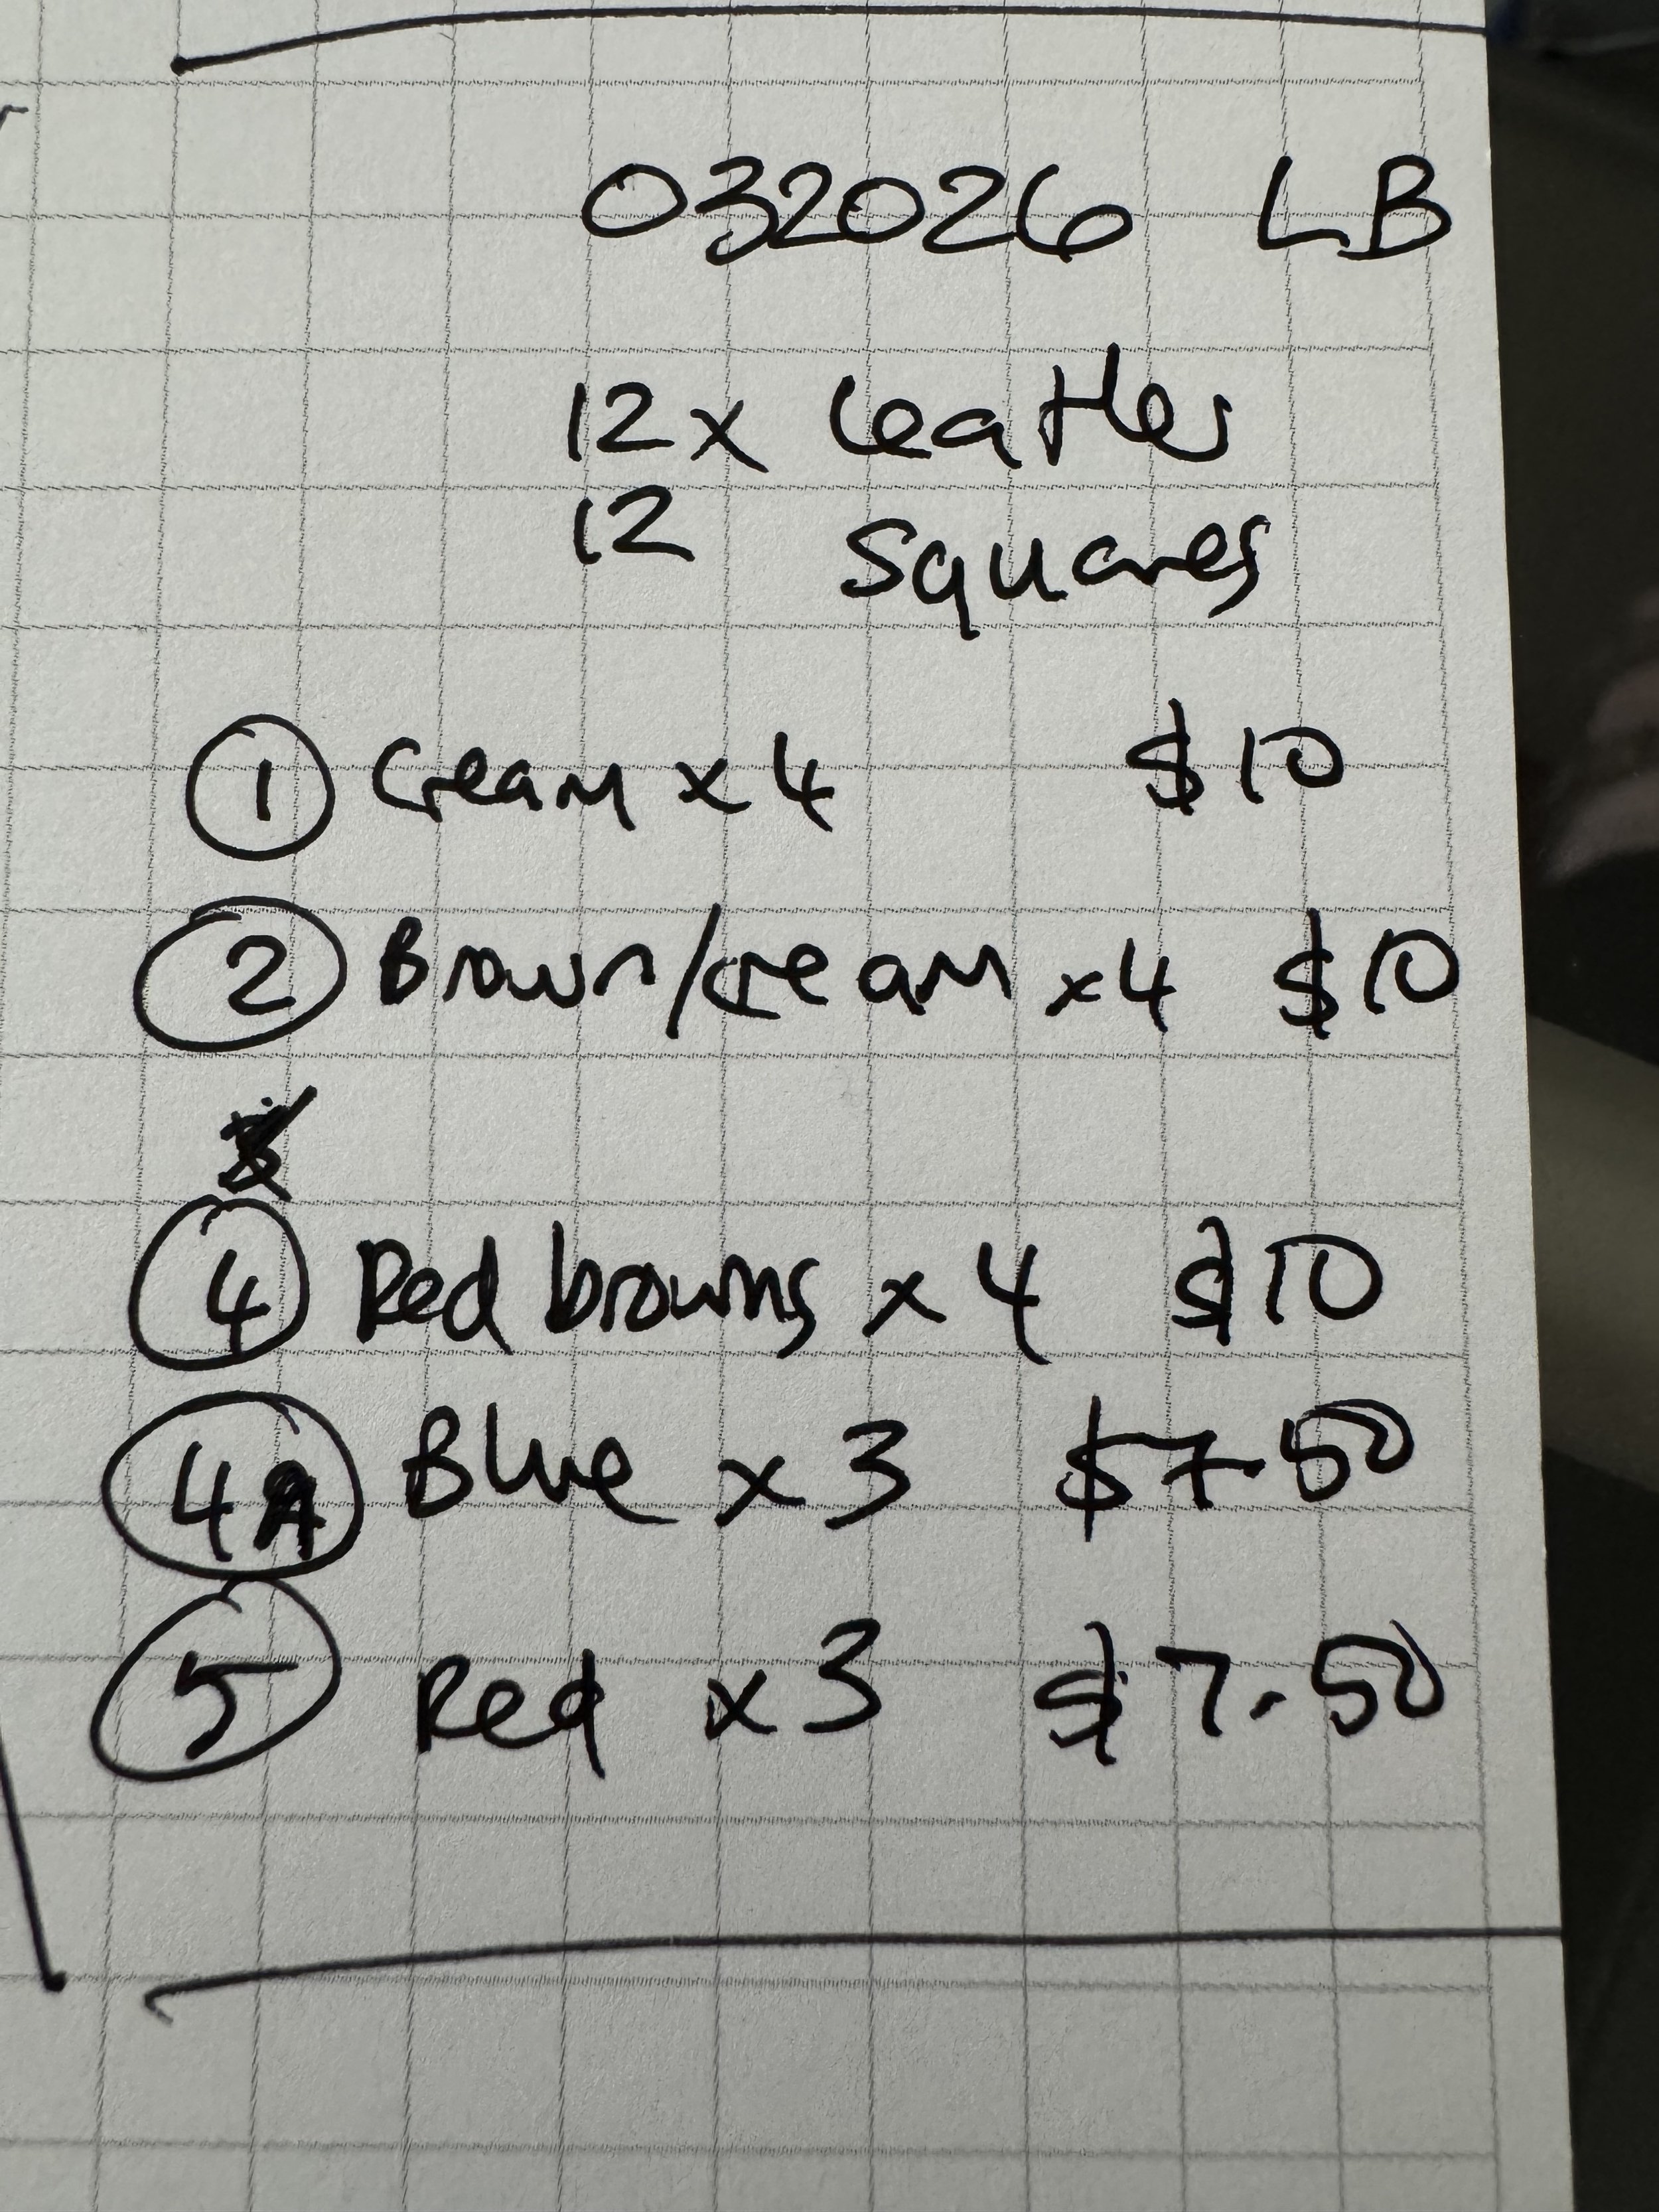 032026 LB
12x Leather
12 Squares
1 Cream x 4 $10
2 Brown/cream x4 $10
4 Red browns x 4 $10
4A Blue x 3 $7.50
5 Red x3 $7.50